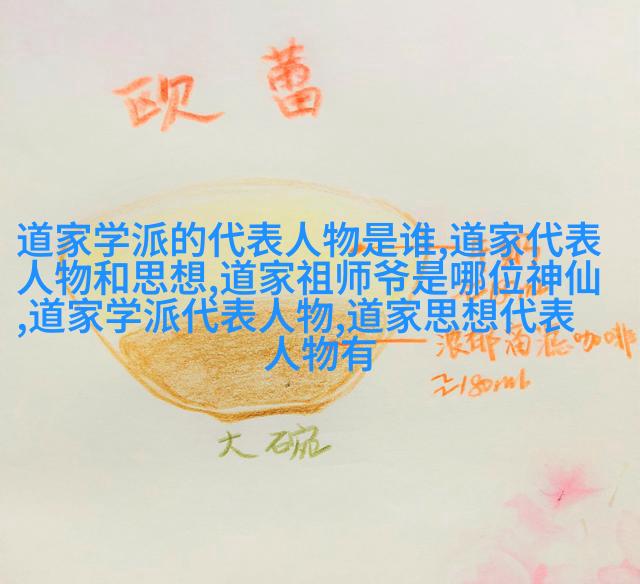 欧蕾
道家学派的代表人物是谁,道家代表
人物和思想,道家祖师爷是哪位神仙
,道家学派代表人物,道家思想代表
人物有
咖啡
≈180ml
大碗